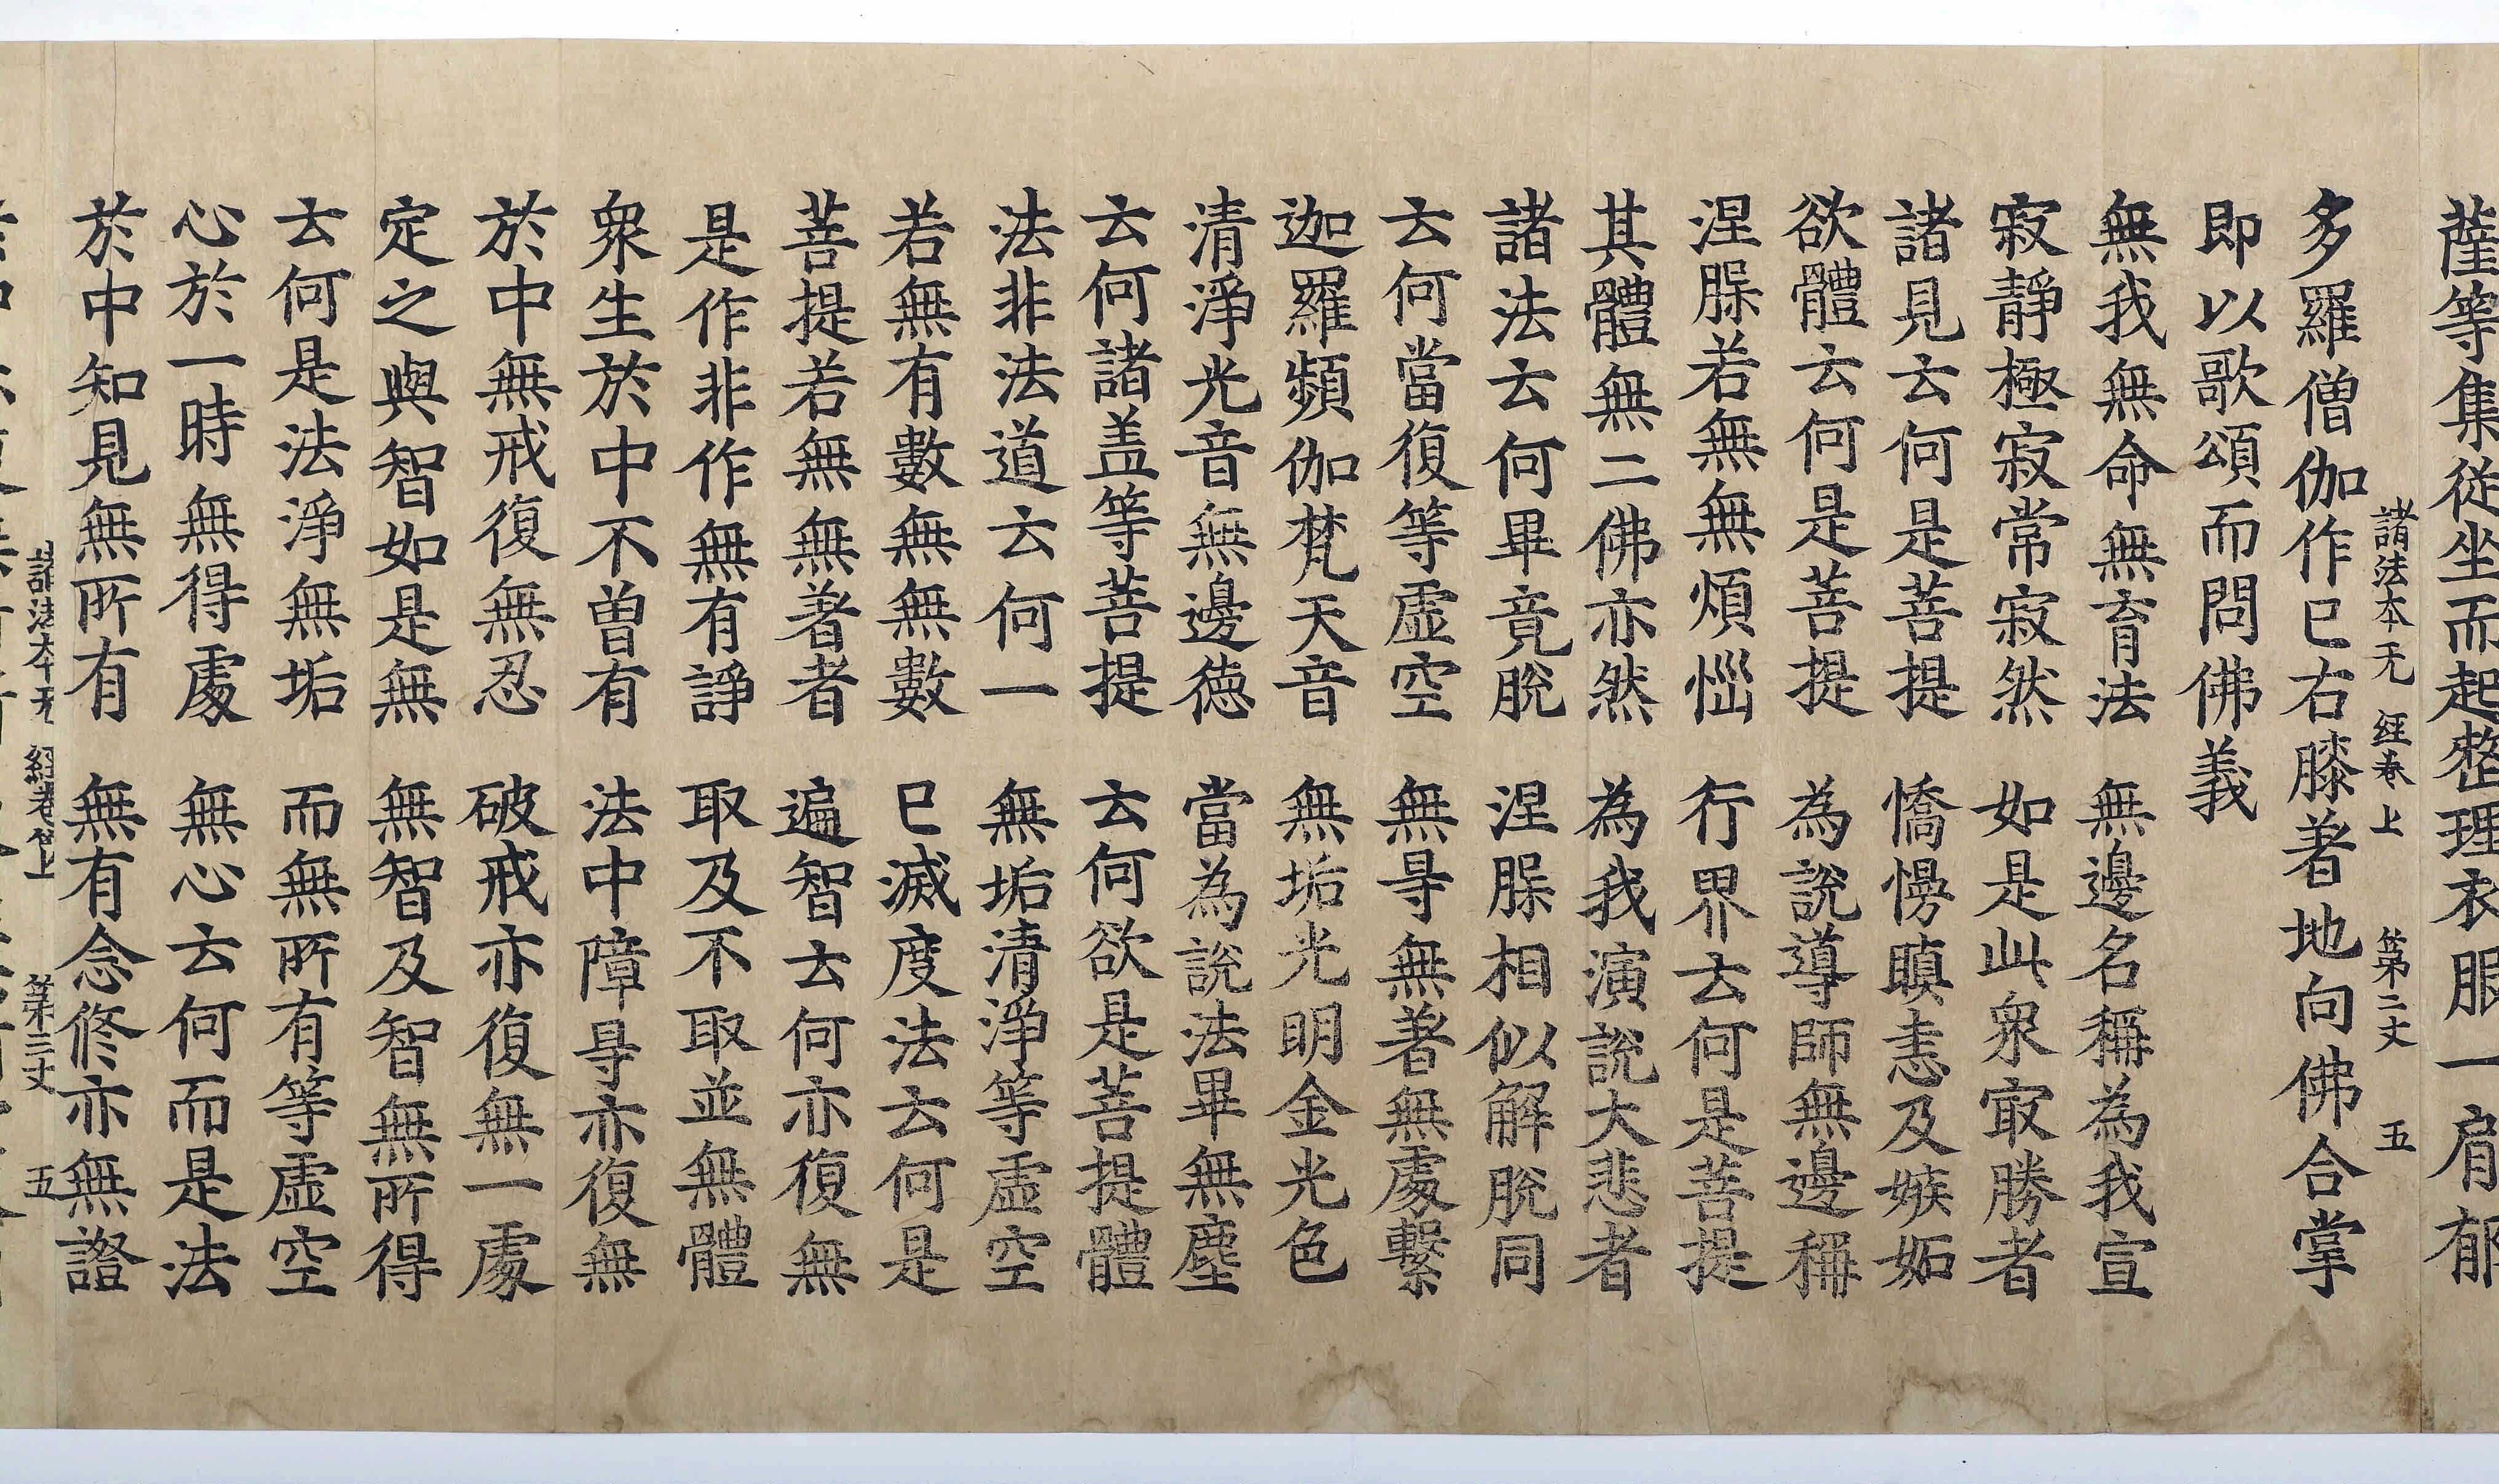 薩等集從坐而起整理衣服一肩郁
諸法本无 經卷上 第二丈 五
多羅僧伽作已右膝著地向佛合掌
即以歌頌而問佛義
無我無命無育法 無邊名稱為我宣
寂靜極寂常寂然 如是此衆㝡勝者
諸見云何是菩提 憍慢瞋恚及嫉妬
欲體云何是菩提 為說導師無邊稱
涅槃若無無煩惱 行界云何是菩提
其體無二佛亦然 為我演說大悲者
諸法云何畢竟脫 涅槃相似解脫同
云何當復等虛空 無㝵無著無處繫
迦羅頻伽梵天音 無垢光明金光色
清淨光音無邊德 當為說法畢無塵
云何諸盖等菩提 云何欲是菩提體
法非法法道云何一 無垢清淨等虛空
若無有數無無數 已滅度法云何是
菩提若無無著者 遍智云何亦復無
是作非作無有諍 取及不取並無體
衆生於中不曽有 法中障㝵亦復無
於中無戒復無忍 破戒亦復無一處
定之與智如是無 無智及智無所得
云何是法淨無垢 而無所有等虛空
心於一時無得處 無心云何而是法
於中知見無所有 無有念修亦無證
諸法本无 經卷上 第三丈 五